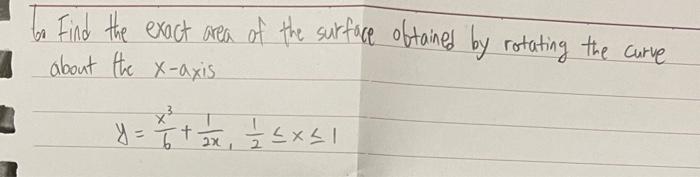 6. Find the exact area of the surface obtained by rotating the curve
about the x-axis
y = x³/6 + 1/2x, 1/2 ≤ x ≤ 1